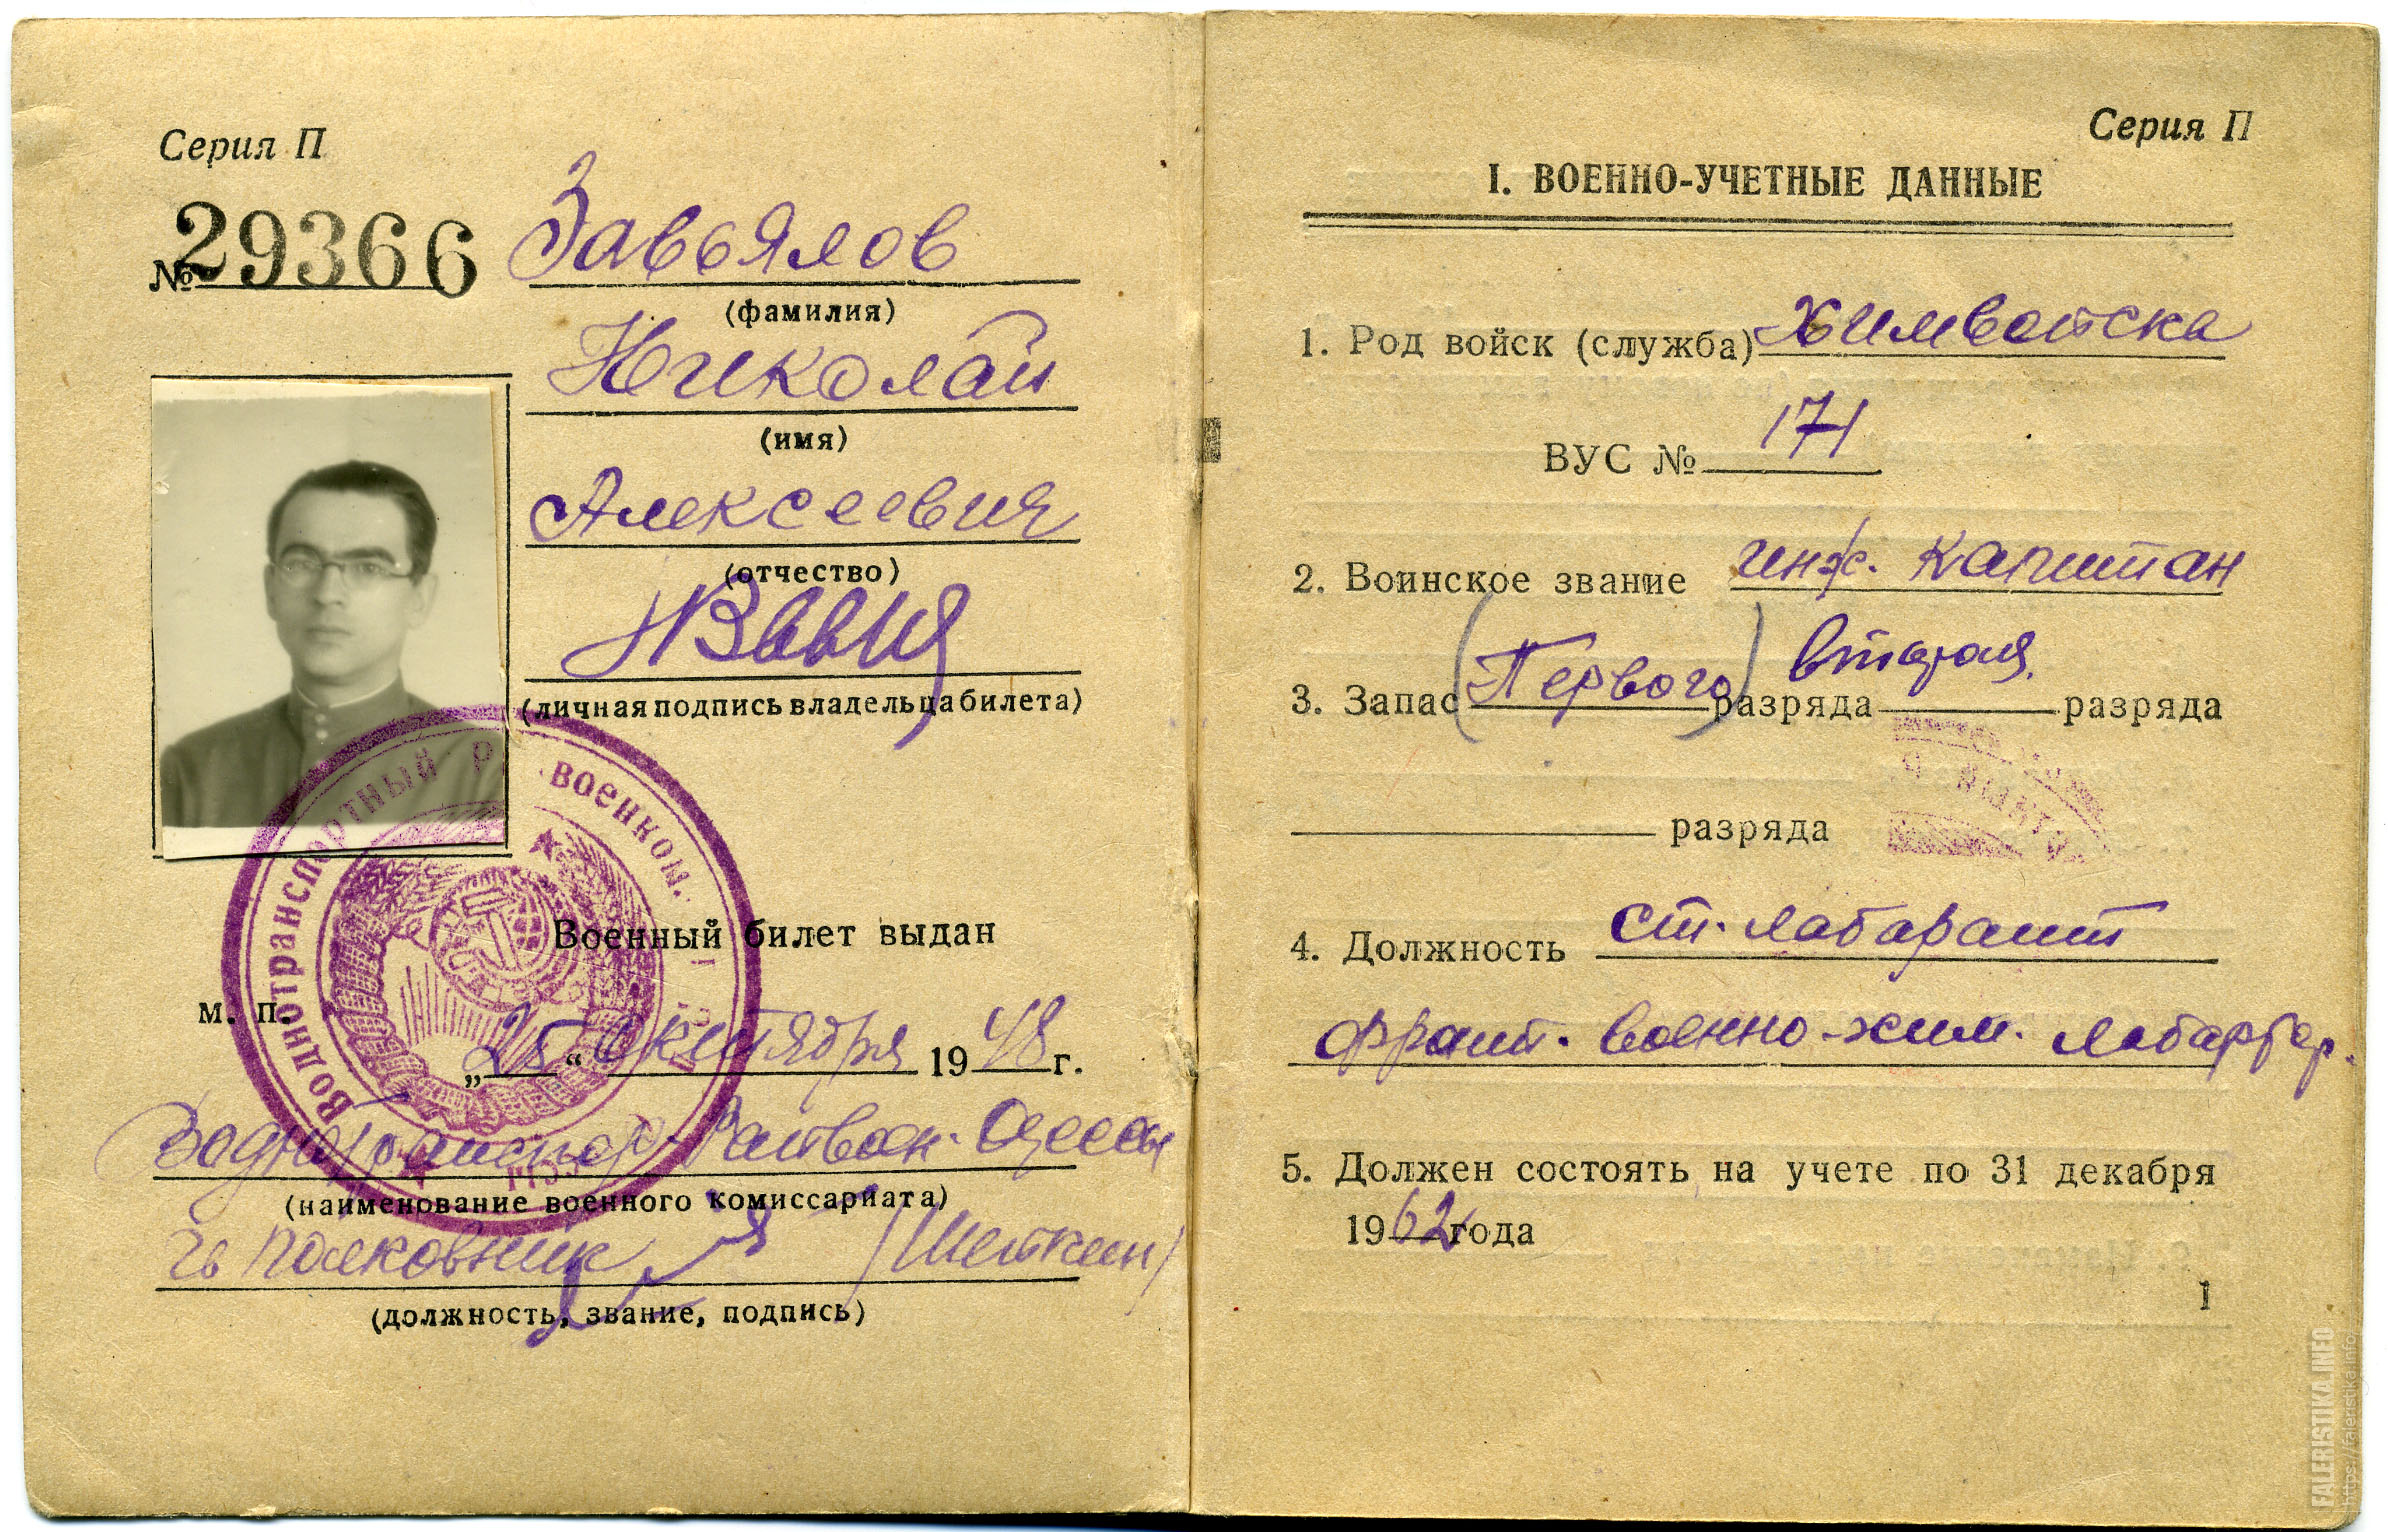 Серия П
№ 29366
Завьялов
(фамилия)
Николай
(имя)
Алексеевич
(отчество)
(личная подпись владельца билета)
Воднотранспортный военком.
Военный билет выдан
м. п.
„25“ октября 1948 г.
Воднотранспор. Райвоен. Одессы
(наименование военного комиссариата)
полковник /Шеткин/
(должность, звание, подпись)
Серия П
I. ВОЕННО-УЧЕТНЫЕ ДАННЫЕ
1. Род войск (служба) Химвойска
ВУС № 171
2. Воинское звание инж. капитан
3. Запас (Первого) разряда вторая. разряда
разряда
4. Должность ст. лаборант
фронт. военно-хим. лаборатор.
5. Должен состоять на учете по 31 декабря
1962 года
1
FALERISTIKA.INFO
https://faleristika.info